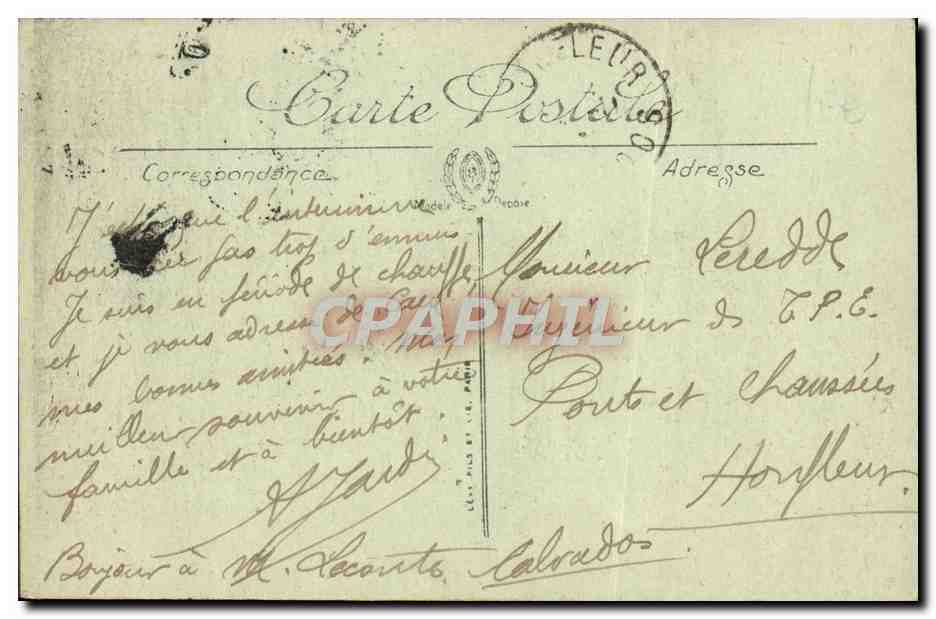 Carte Postale
HONFLEUR
Correspondance
Adresse
(1)
Modèle Déposé
J'espère que l'intérimaire
vous pas trop d'ennuis.
Je suis en période de chauffe,
et je vous adresse de
mes bonnes amitiés. Mon
meilleur souvenir à votre
famille et à bientôt.
Bonjour à M. Leconte
Monsieur Leredde
Ingénieur des T.P.E.
Ponts et Chaussées
Honfleur.
Calvados.
LEVY FILS ET CIE, PARIS
CPAPHIL